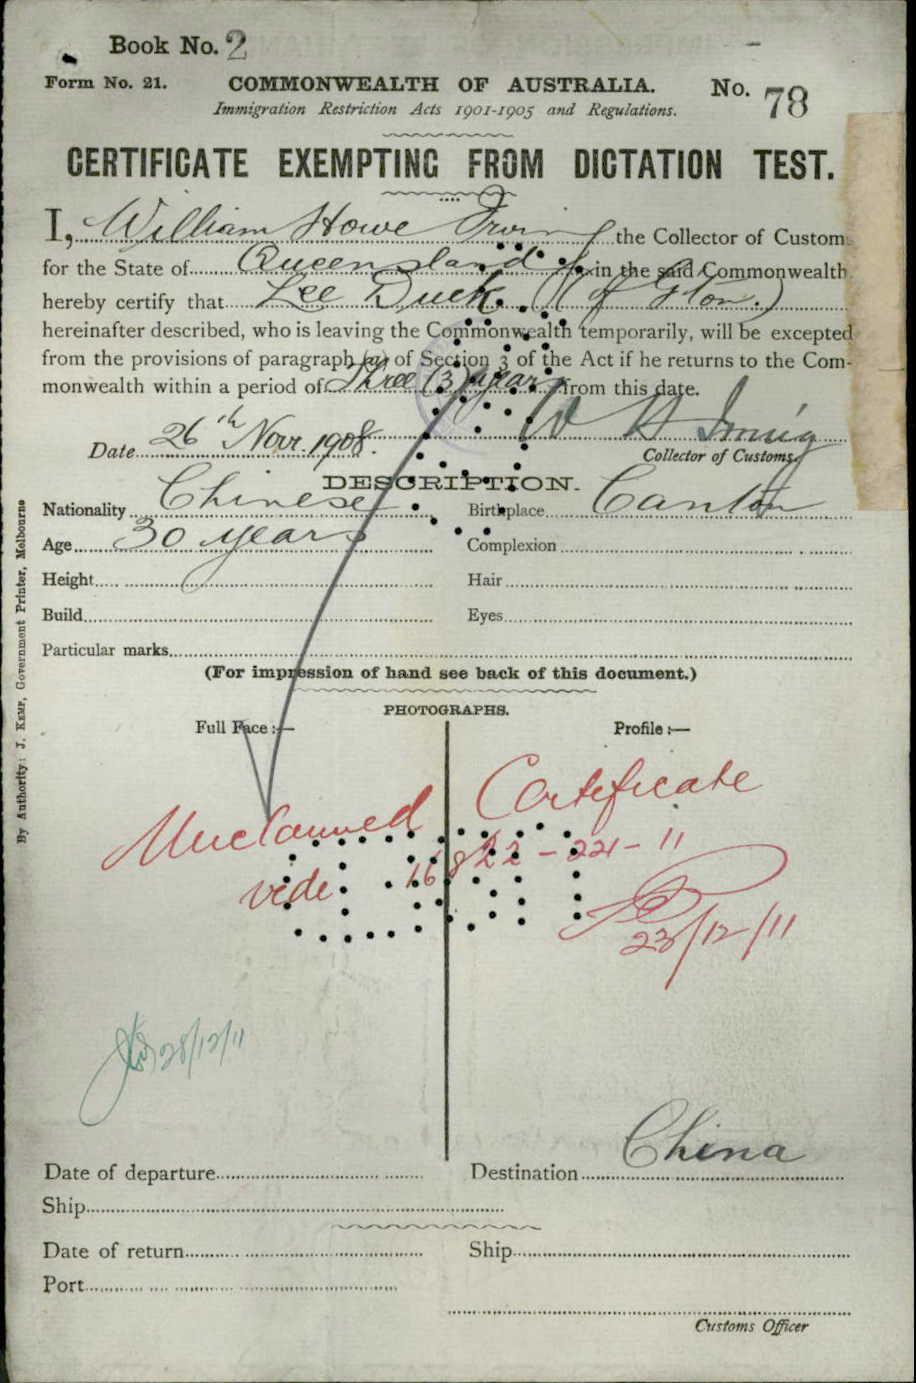 Book No. 2
Form No. 21. COMMONWEALTH OF AUSTRALIA. No. 78
Immigration Restriction Acts 1901-1905 and Regulations.
CERTIFICATE EXEMPTING FROM DICTATION TEST.
I, William Howe Irving the Collector of Customs
for the State of Queensland in the said Commonwealth
hereby certify that Lee Duck. (of Gton.)
hereinafter described, who is leaving the Commonwealth temporarily, will be excepted
from the provisions of paragraph (a) of Section 3 of the Act if he returns to the Com-
monwealth within a period of Three (3) years from this date.
W H Irving
Date 26th Novr. 1908.
Collector of Customs.
DESCRIPTION.
Nationality Chinese Birthplace Canton
Age 30 years Complexion
Height Hair
Build Eyes
Particular marks
(For impression of hand see back of this document.)
PHOTOGRAPHS.
Full Face :— Profile :—
Unclaimed Certificate
vide
23/12/11
28/12/11
China
Date of departure Destination
Ship
Date of return Ship
Port
Customs Officer
By Authority: J. KEMP, Government Printer, Melbourne